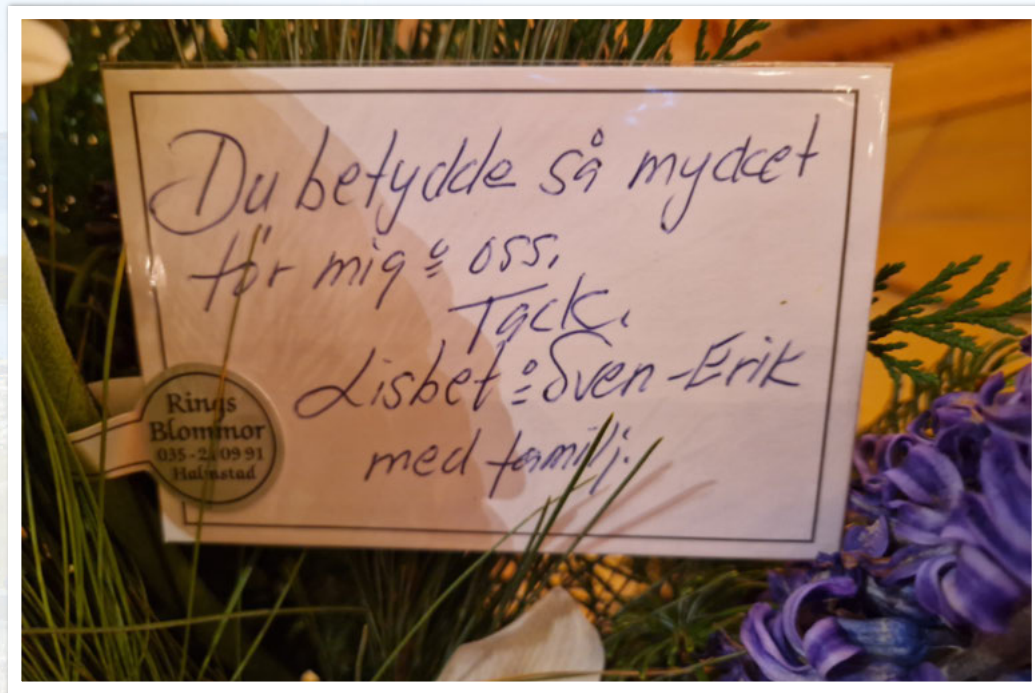 Du betydde så mycket
för mig o oss.
Tack.
Lisbet o Sven-Erik
med familj.
Rings
Blommor
Halmstad